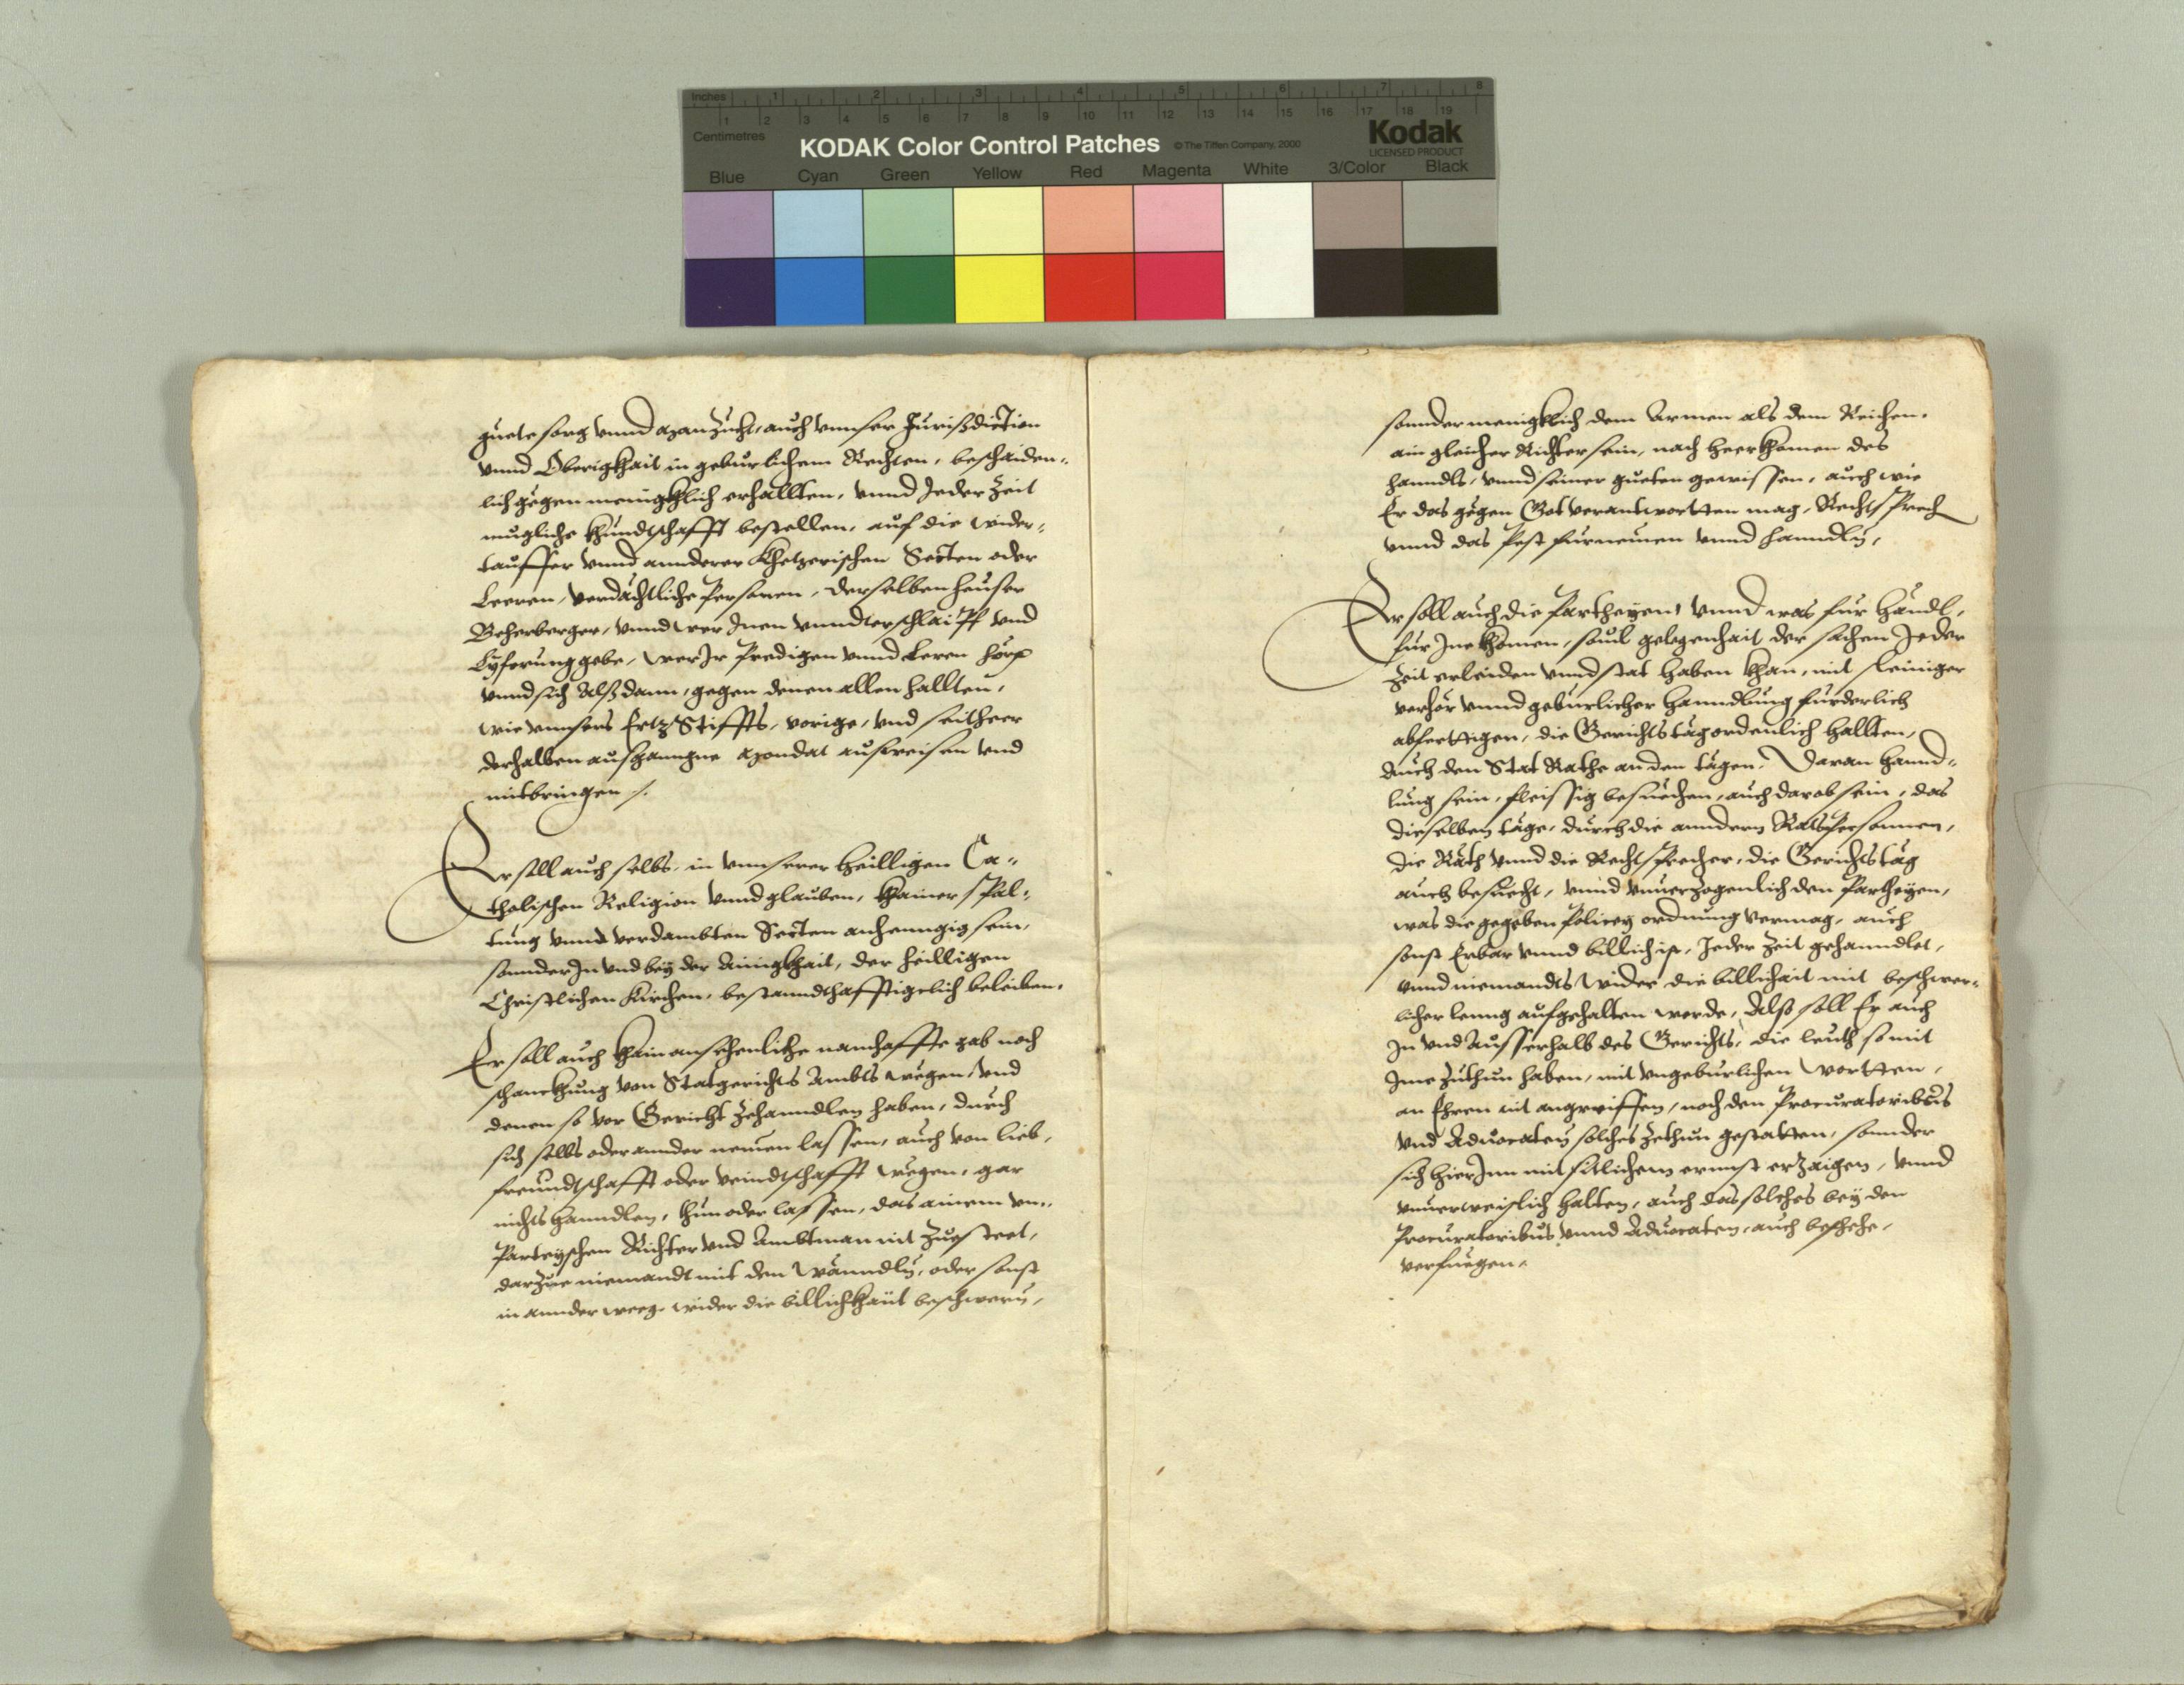 Inches 1 2 3 4 5 6 7 8
1 2 3 4 5 6 7 8 9 10 11 12 13 14 15 16 17 18 19
Centimetres
KODAK Color Control Patches © The Tiffen Company, 2000
Kodak
LICENSED PRODUCT
Blue Cyan Green Yellow Red Magenta White 3/Color Black
guete sorg vnnd manzucht, auch vnnser Jurißdiction
vnnd Oberigkhait in geburlichem Rechten, beschaiden-
lich gegen menigkhlich erhallten, vnnd Jeder Zeit
mugliche khundtschafft bestellen, auf die wider-
tauffer vnnd annderer khetzerischen Secten oder
Leeren, verdächtliche Personen, derselben heuser
Beherberger, vnnd wer Inen vnnderschlaipff vnd
Lyferung gebe, wer Ir Predigen vnnd Leren hört
vnnd sich Alßdann, gegen denen allen hallten,
wie vnnsers Ertz Stiffts, vorige, vnd seitheer
derhalben ausganngne mandat aufweisen vnd
mitbringen /.
Er soll auch selbs, in vnnserer heilligen Ca-
tholischen Religion vnnd glauben, khainer Spal-
tung vnnd verdambten Secten anhenngig sein,
sonnder In vnd bey der Ainigkhait, der heilligen
Christlichen Kirchen, bestanndthafftigelich beleiben.
Er soll auch khain ansehenliche namhaffte gab noch
schanckhung von Statgerichts Ambts wegen, vnd
denen so vor Gericht Zehanndlen haben, durch
sich selbs oder annder nemen lassen, auch von lieb,
freundtschafft oder veindtschafft wegen, gar
nichts hanndlen, thun oder lassen, das ainem vn-
Parteyschen Richter vnd Ambtman nit Zuesteet,
darzue niemandt mit den Wänndln, oder sonst
in annder weeg, wider die billichkhait beschwern,
sonnder menigklich dem Armen als dem Reichen,
ain gleicher Richter sein, nach heerkhomen des
hanndls, vnnd seiner gueten gewissen, auch wie
Er das gegen Got verantwortten mag, Recht Sprech
vnnd das Pest furnemen vnnd hanndln,
Er soll auch die Partheyen, vnnd was für händl,
für Ine khomen, souil gelegenhait der sachen Jeder
Zeit erleiden vnnd stat haben khan, mit seiniger
verhör vnnd geburlicher hanndlung furderlich
abferttigen, die Gerichts täg ordenlich hallten,
auch den Stat Rathe an den tägen, Daran hannd-
lung sein, fleissig besuechen, auch darob sein, das
dieselben täge, durch die anndern Ratspersonnen,
die Räth vnnd die Rechtsprecher, die Gerichts täg
auch besuecht, vnnd vnuerzogenlich den Partheyen,
was die gegeben Policey ordnung vermag, auch
sonst Erbar vnnd billich ist, Jeder Zeit gehanndlet,
vnnd niemandts wider die billichait mit beschwer-
licher leung aufgehalten werde, Alß soll Er auch
In vnd Ausserhalb des Gerichts, die leuth so mit
Ime Zuthun haben, mit vngeburlichen Wortten,
an Ehren nit angreiffen, noch den Procuratoribus
vnd Aduocaten solches Zethun gestatten, sonnder
sich hierInn mit sitlichem ernnst erzaigen, vnnd
vnuerweislich halten, auch das solches bey den
Procuratoribus vnnd Aduocaten, auch beschehe,
verfuegen.